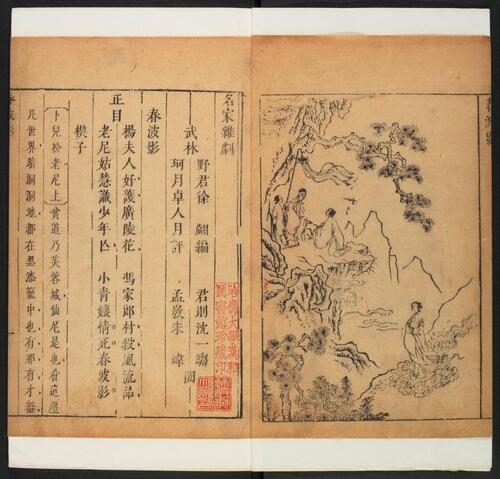 春波影
名家雜劇
武林
野君徐 翽編
珂月卓人月評
君則沈一
孟敭朱 煒
閱
春波影
正目
楊夫人好護廣陵花 馮家郎村殺風流品
老尼姑慧識少年亡 小青孃情死春波影
楔子
卜兒扮老尼上 貪道乃芙蓉城仙尼是也看這壁
几世界鬧洞洞地都在黑漆籠中也有那有才無
春波影